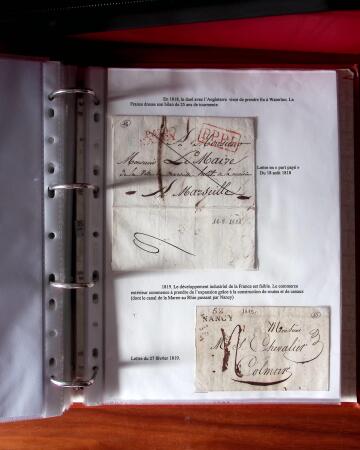 En 1818, le duel avec l'Angleterre vient de prendre fin à Waterloo. La
France dresse son bilan de 25 ans de tourmente.
P.P.P.P.
A Monsieur
Monsieur Le Maire
de la
A Marseille
Lettre en « port payé »
Du 18 août 1818
1819. Le développement industriel de la France est faible. Le commerce
extérieur commence à prendre de l'expansion grâce à la construction de routes et de canaux
(dont le canal de la Marne au Rhin passant par Nancy)
Lettre du 27 février 1819.
NANCY
1819
Monsieur
Chevalier
Colmar